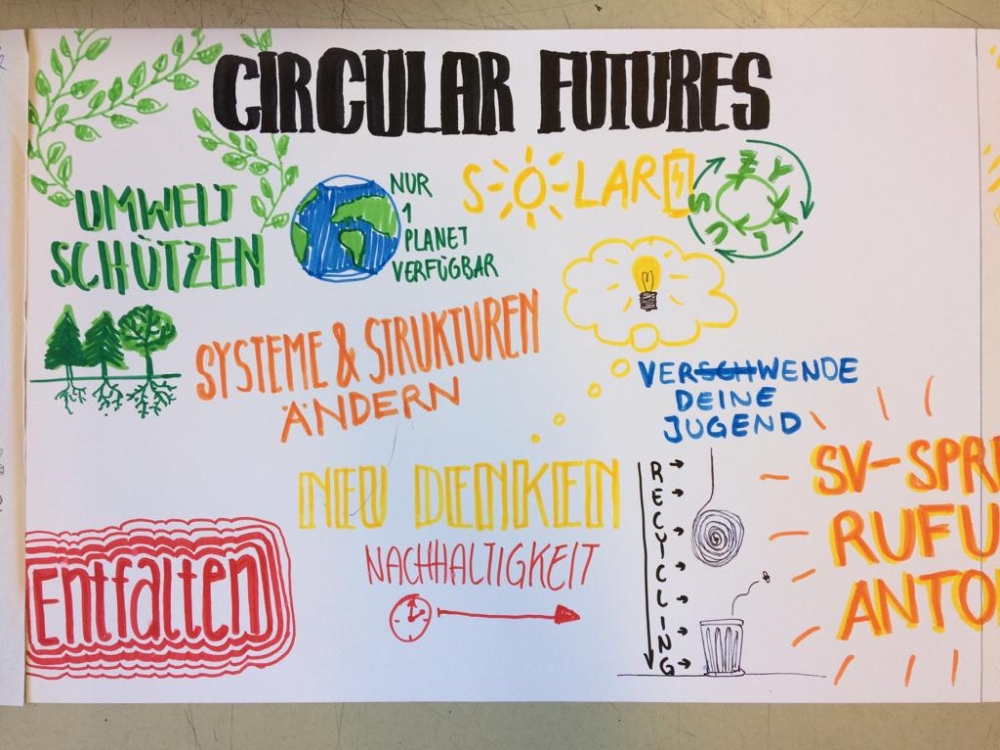 CIRCULAR FUTURES
UMWELT
SCHÜTZEN
NUR
1
PLANET
VERFÜGBAR
SOLAR
SYSTEME & STRUKTUREN
ÄNDERN
VERSCHWENDE
DEINE
JUGEND
NEU DENKEN
NACHHALTIGKEIT
Entfalten
RECYCLING
SV-SPR
RUFU
ANTO